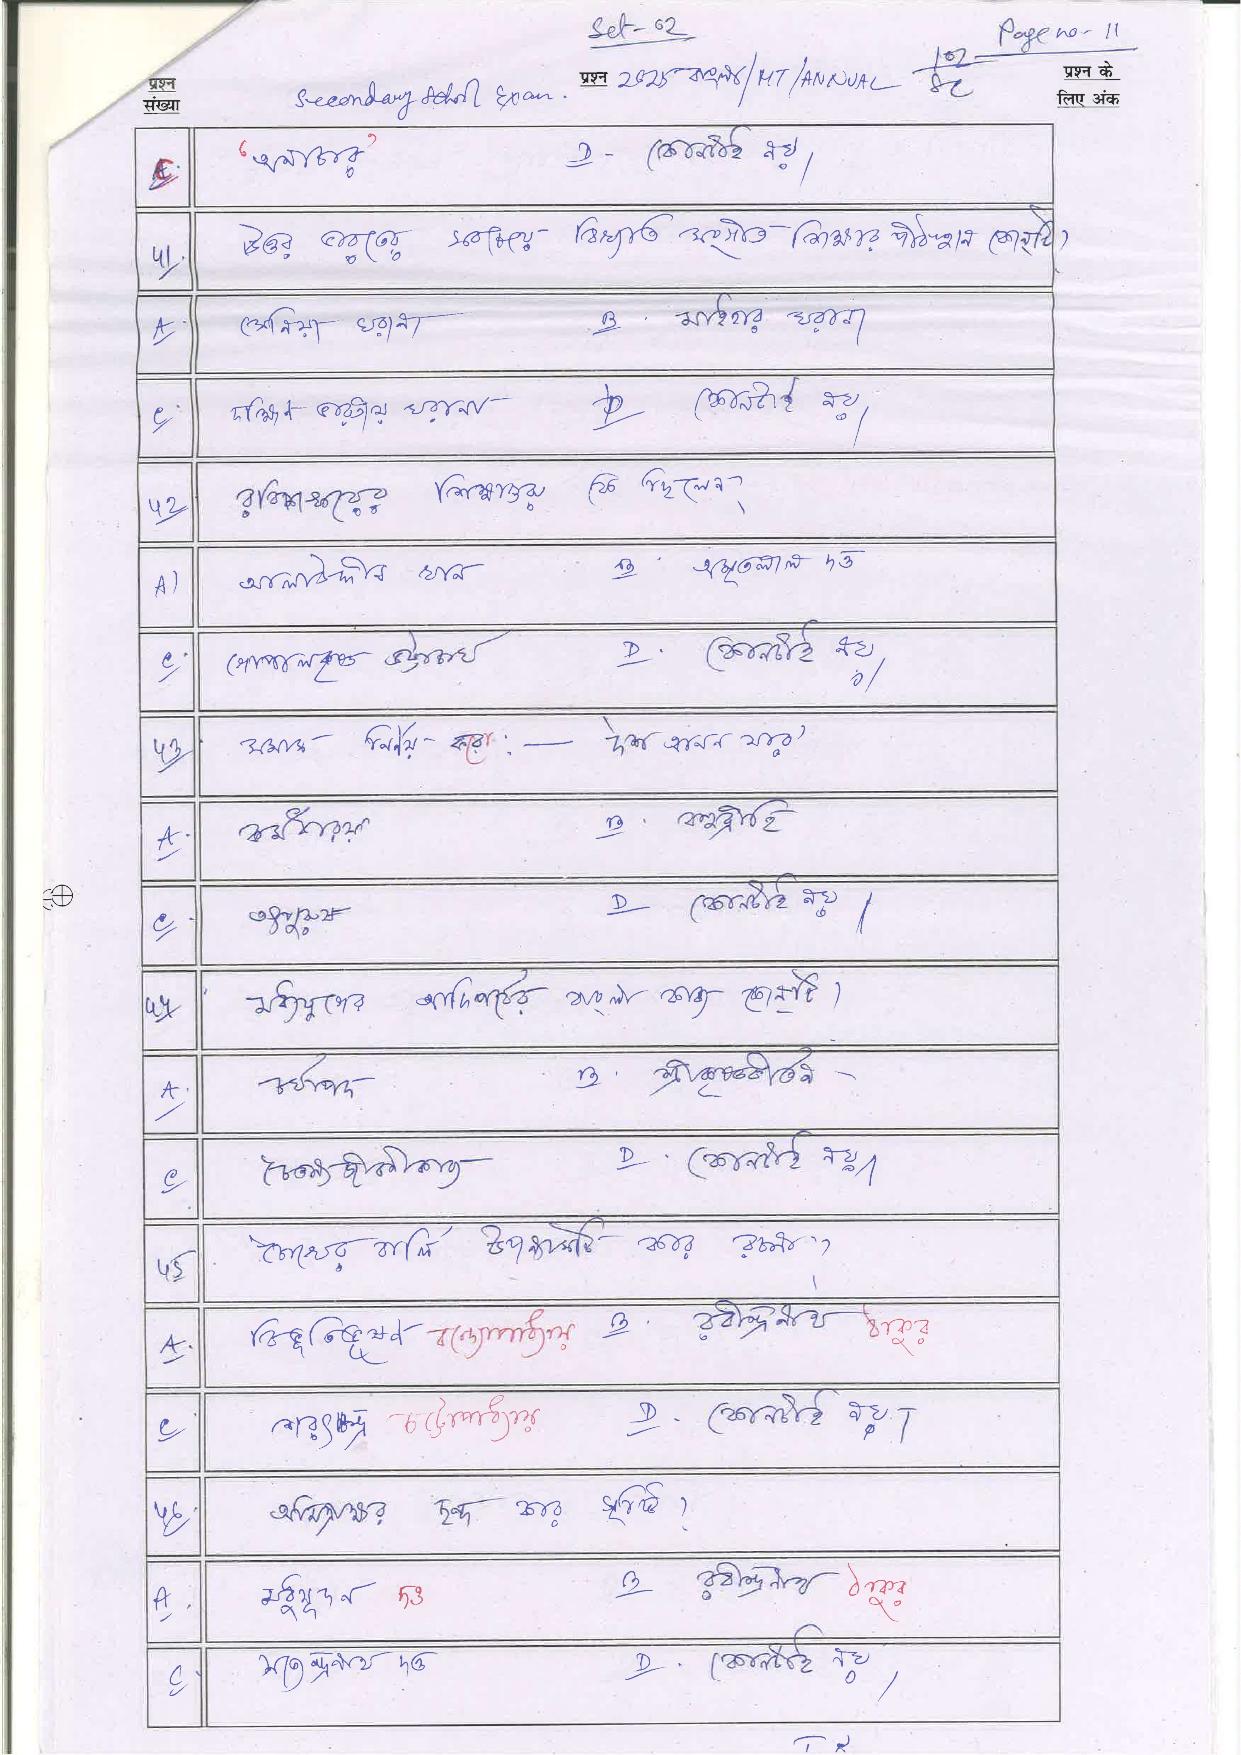 Set-02
Page no - 11
प्रश्न संख्या
Secondary School Exam.
प्रश्न 2025 বাংলা/MT/ANNUAL
102
प्रश्न के लिए अंक
C. 'অনাচার' D - কোনটাই নয়।
৫1. উত্তর ভারতের সবচেয়ে বিখ্যাত সংগীত শিক্ষার পীঠস্থান কোনটি?
A. সেনিয়া ঘরানা B. মাইহার ঘরানা
C. দক্ষিণ ভারতীয় ঘরানা D কোনটাই নয়।
৫2 রবিশঙ্করের শিক্ষাগুরু কে ছিলেন?
A) আলাউদ্দীন খান B. অমৃতলাল দত্ত
C. গোপালকৃষ্ণ ভট্টাচার্য D. কোনটাই নয়।
৫3 সমাস নির্ণয় করো :— দশ আনন যার'
A. কর্মধারয় B. বহুব্রীহি
C. তৎপুরুষ D কোনটাই নয়।
৫৪ মধ্যযুগের আদিপর্বের বাংলা কাব্য কোনটি?
A. চর্যাপদ B. শ্রীকৃষ্ণকীর্তন -
C চৈতন্যজীবনীকাব্য D. কোনটাই নয়।
৫5 চোখের বালি উপন্যাসটি কার রচনা?
A. বিভূতিভূষণ বন্দ্যোপাধ্যায় B. রবীন্দ্রনাথ ঠাকুর
C শরৎচন্দ্র চট্টোপাধ্যায় D. কোনটাই নয়।
৫6 অমিত্রাক্ষর ছন্দ কার সৃষ্টি?
A. মধুসূদন দত্ত B রবীন্দ্রনাথ ঠাকুর
C. সত্যেন্দ্রনাথ দত্ত D. কোনটাই নয়।